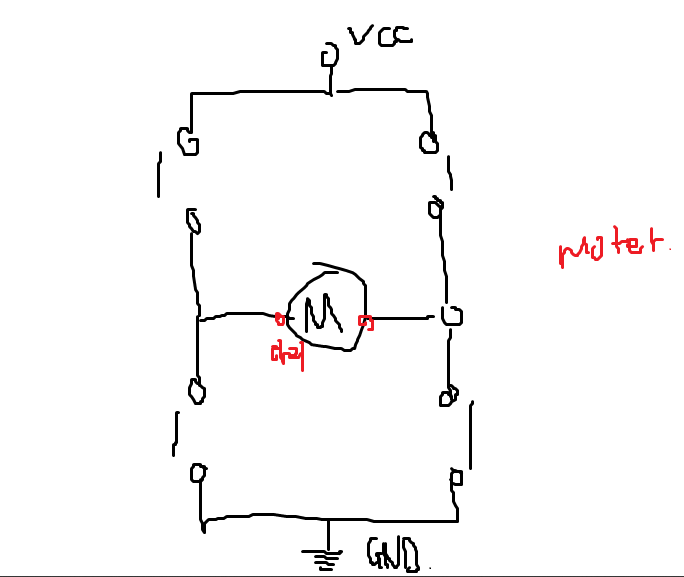 VCC
M
Moter.
GND.